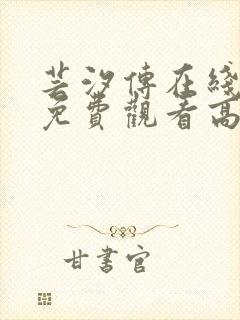 芸汐傳在綫
免費觀看高
甘書官